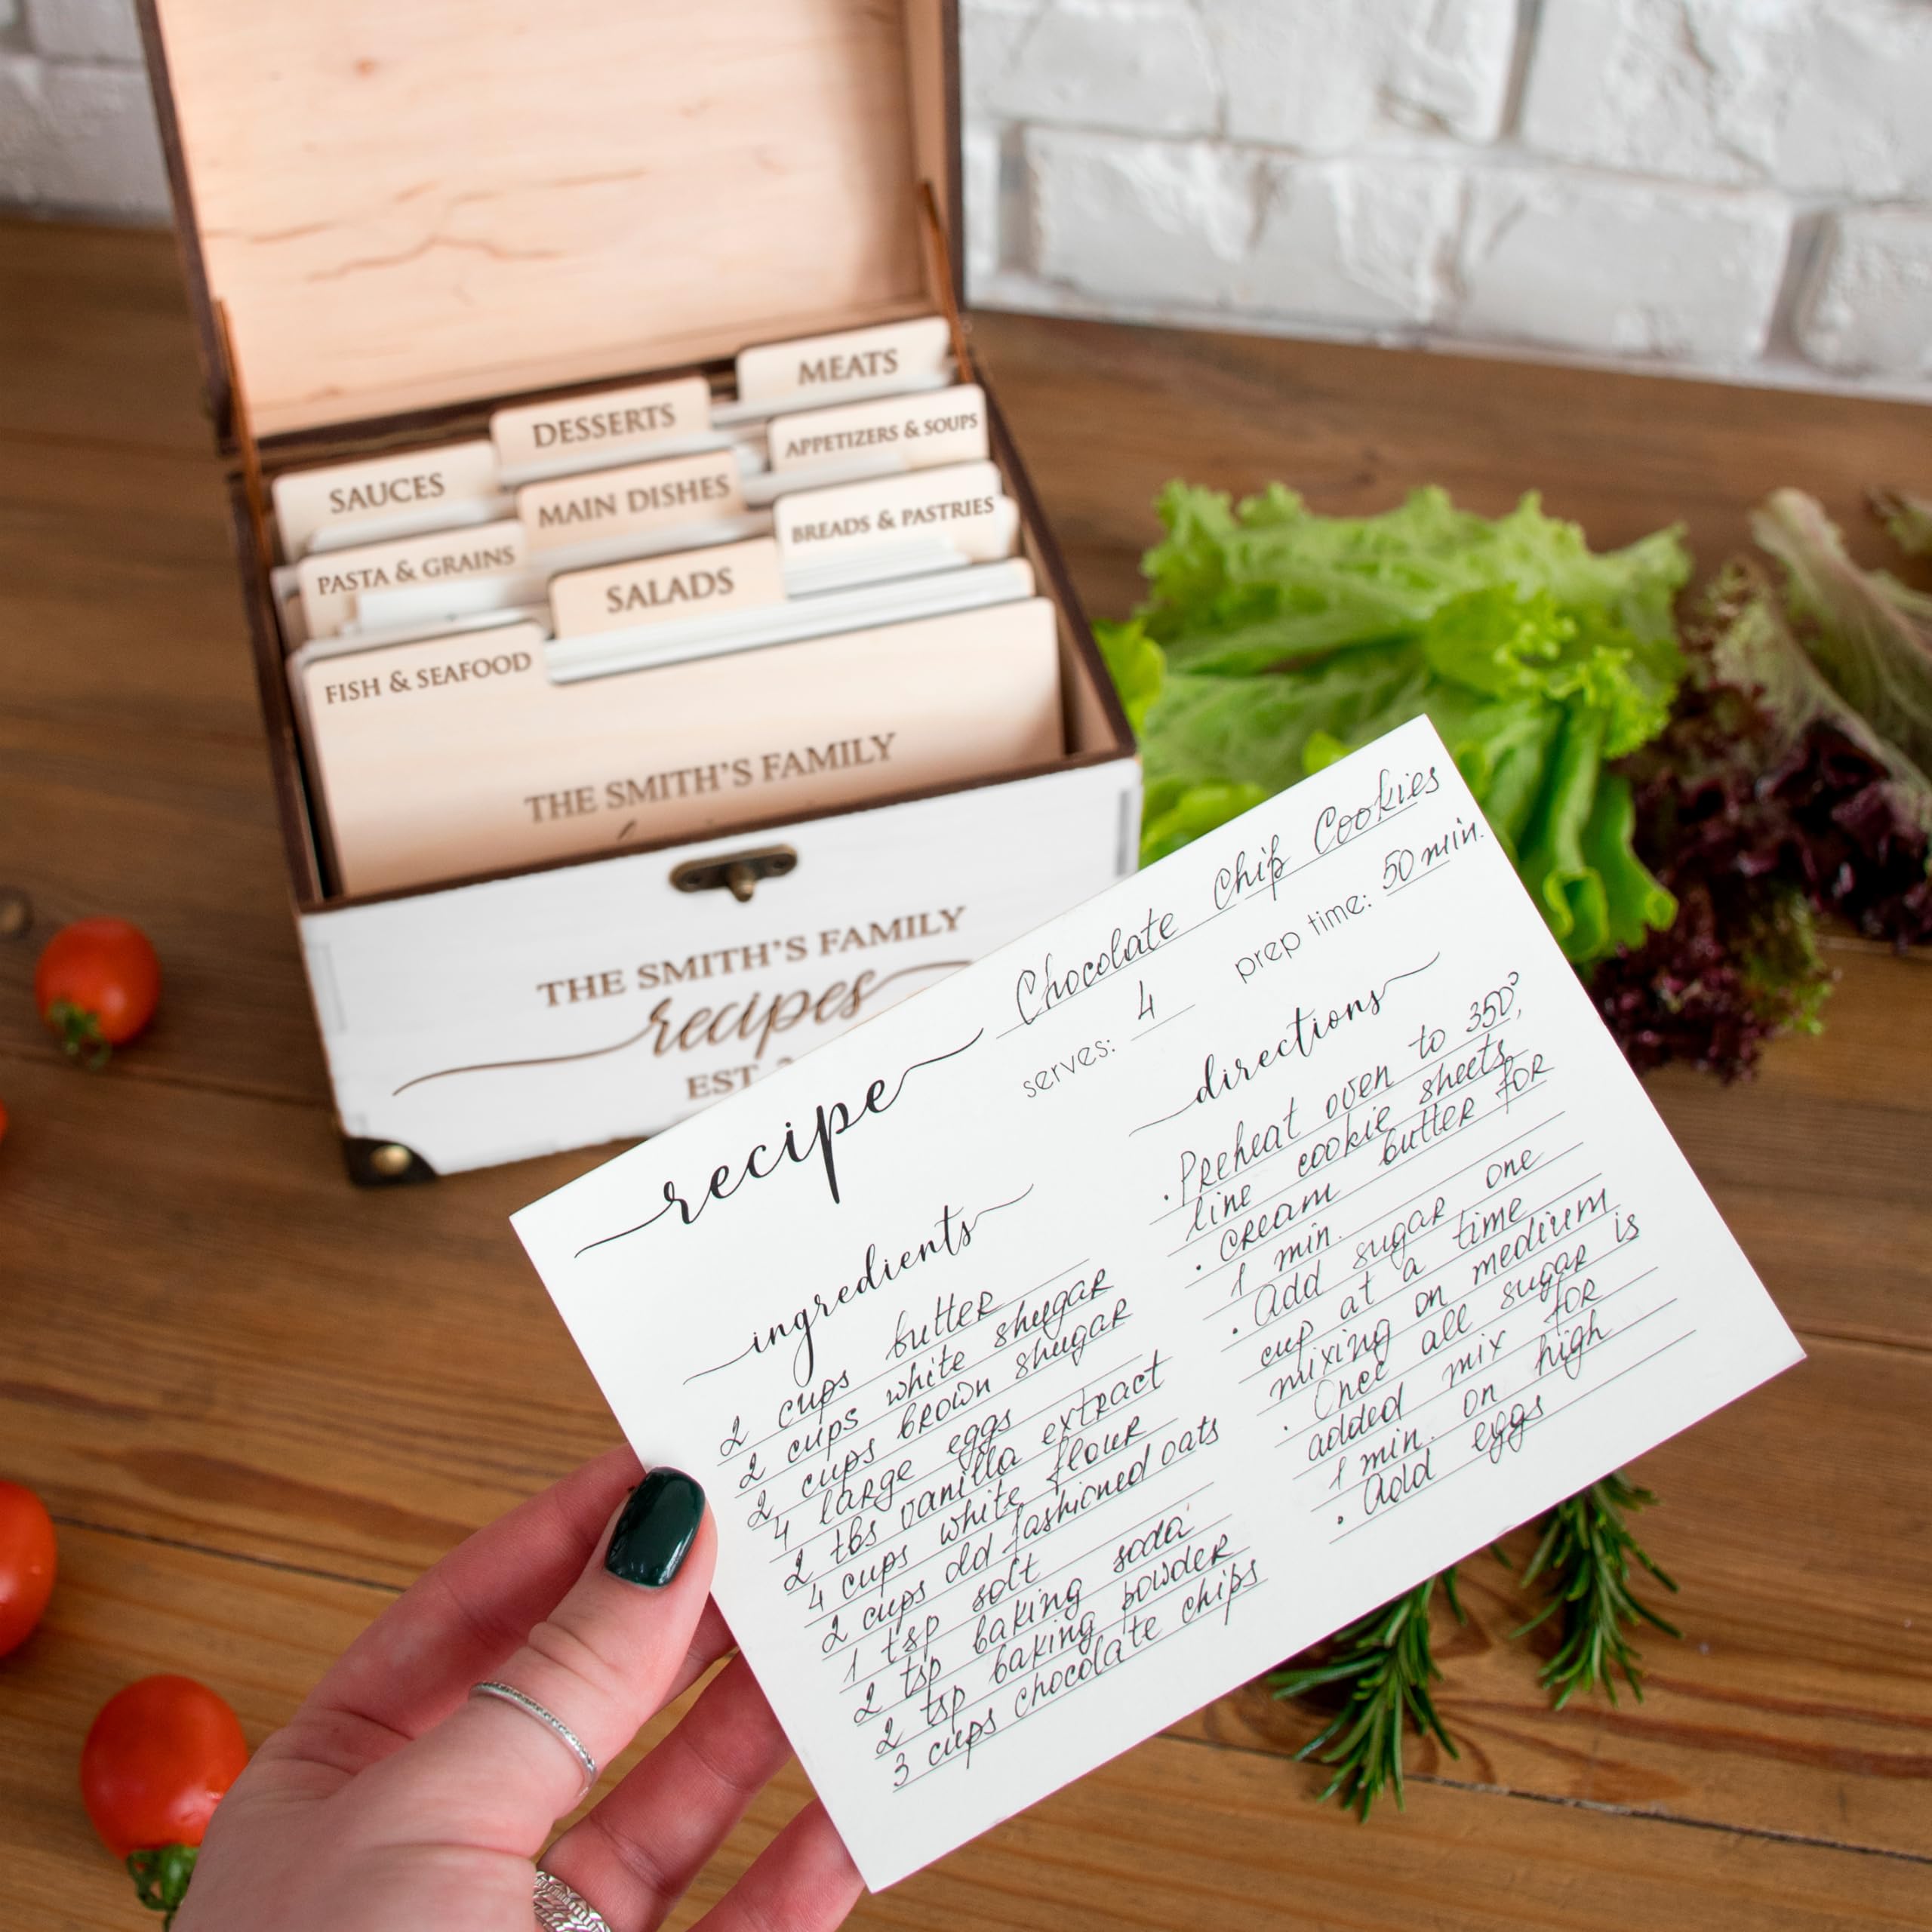 MEATS
DESSERTS
APPETIZERS & SOUPS
SAUCES
MAIN DISHES
BREADS & PASTRIES
PASTA & GRAINS
SALADS
FISH & SEAFOOD
THE SMITH'S FAMILY
THE SMITH'S FAMILY
recipes
EST
recipe Chocolate Chip Cookies
serves: 4 prep time: 50 min.
ingredients
2 cups butter
2 cups white shugar
2 cups brown shugar
4 large eggs
2 tbs vanilla extract
4 cups white flour
2 cups old fashioned oats
1 tsp solt
2 tsp baking soda
2 tsp baking powder
3 cups chocolate chips
directions
• Preheat oven to 350°,
line cookie sheets
• Cream butter for
1 min.
• Add sugar one
cup at a time
mixing on medium
• Once all sugar is
added mix for
1 min. on high
• Add eggs